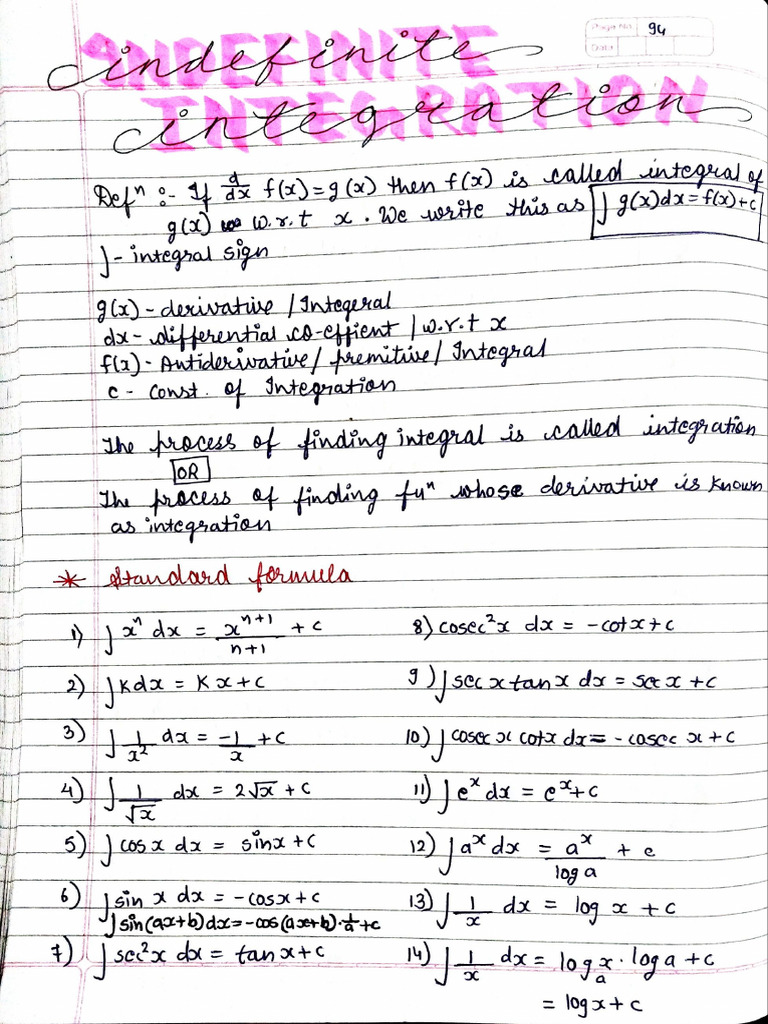 Page No. 94
Date
INDEFINITE
indefinite
INTEGRATION
integration
Defⁿ :- If d/dx f(x) = g(x) then f(x) is called integral of
g(x) w.r.t x. We write this as ∫g(x)dx = f(x)+c
∫ - integral sign
g(x) - derivative / Integeral
dx - differential co-effient / w.r.t x
f(x) - Antiderivative / premitive / Integral
c - const. of Integration
The process of finding integral is called integration
OR
The process of finding fuⁿ whose derivative is known
as integration
* Standard formula
1) ∫xⁿ dx = xⁿ⁺¹/n+1 + c
2) ∫K dx = Kx + c
3) ∫1/x² dx = -1/x + c
4) ∫1/√x dx = 2√x + c
5) ∫cos x dx = sinx + c
6) ∫sin x dx = -cosx + c
∫sin(ax+b)dx = -cos(ax+b)·1/a + c
7) ∫sec²x dx = tanx + c
8) cosec²x dx = -cotx + c
9) ∫sec x tan x dx = sec x + c
10) ∫cosec x cotx dx = -cosec x + c
11) ∫eˣ dx = eˣ + c
12) ∫aˣ dx = aˣ/log a + c
13) ∫1/x dx = log x + c
14) ∫1/x dx = logₐx · log a + c
= log x + c